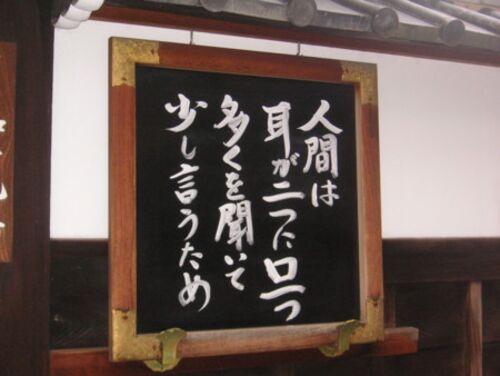 人間は
耳が二つに口一つ
多くを聞いて
少し言うため